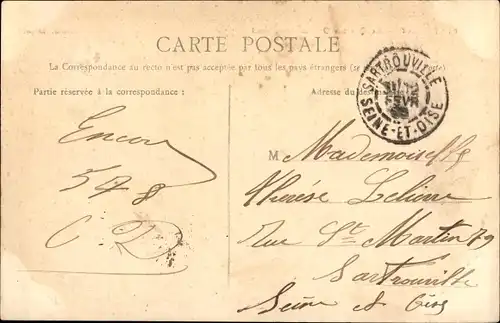 CARTE POSTALE
La Correspondance au recto n'est pas acceptée par tous les pays étrangers (se
Partie réservée à la correspondance :
Adresse du
SARTROUVILLE
FEVR
SEINE-ET-OISE
Encore
548
C D
M Mademoiselle
Thérèse
Rue St Martin 79
Sartrouville
Seine et Oise